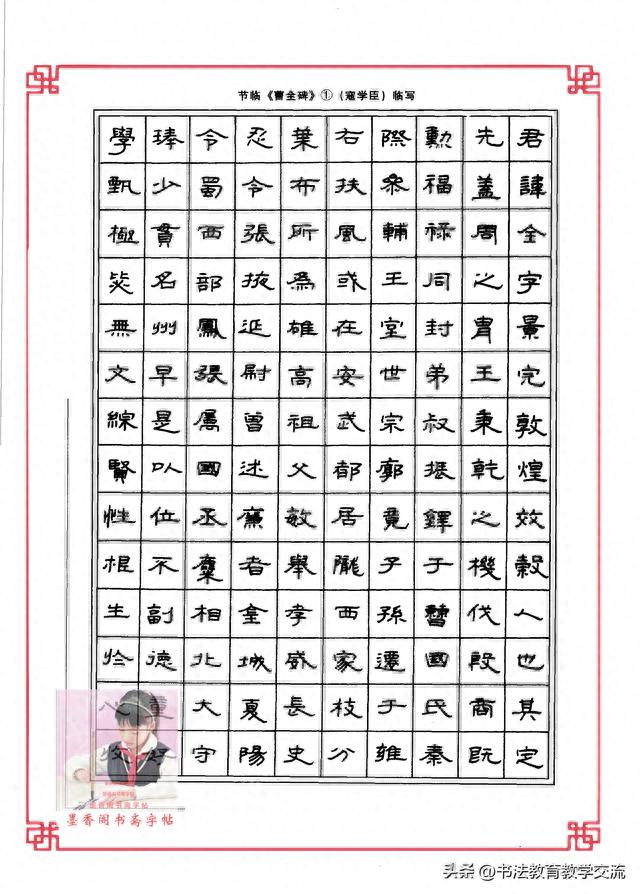 节临《曹全碑》①（寇学臣）临写
君諱全字景完敦煌效穀人也其定
先蓋周之胄王秉乾之機伐殷商既
勲福祿同封弟叔振鐸于曹國氏秦
際參輔王室世宗廓竟子孫遷于雍
右扶風或在安武都居隴西家枝分
葉布所為雄高祖父敏舉孝威長史
忍令張掖延尉曾述廉者金城夏陽
令蜀西部鳳張屬國丞麋相北大守
琫少貫名州早是以位不副德童好
學甄極毖無文綜賢性根生於心收
墨香阁书斋字帖
墨香阁书斋字帖
头条@书法教育教学交流